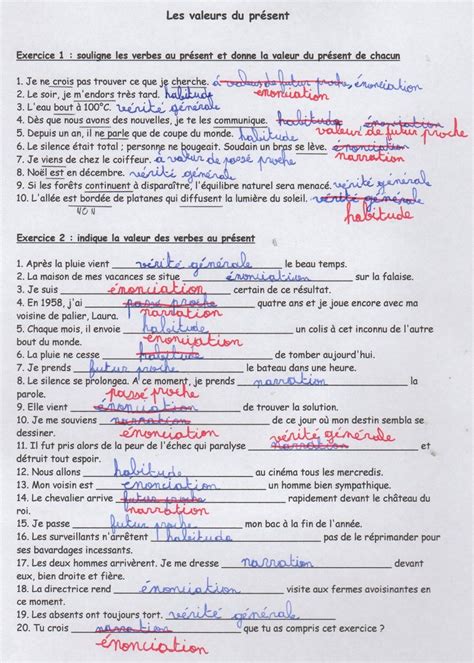 Les valeurs du présent
Exercice 1 : souligne les verbes au présent et donne la valeur du présent de chacun
1. Je ne crois pas trouver ce que je cherche. à valeur de futur proche, énonciation
2. Le soir, je m'endors très tard. habitude énonciation
3. L'eau bout à 100°C. vérité générale
4. Dès que nous avons des nouvelles, je te les communique. habitude énonciation
5. Depuis un an, il ne parle que de coupe du monde. habitude valeur de futur proche
6. Le silence était total ; personne ne bougeait. Soudain un bras se lève. énonciation
7. Je viens de chez le coiffeur. à valeur de passé proche narration
8. Noël est en décembre. vérité générale
9. Si les forêts continuent à disparaître, l'équilibre naturel sera menacé. vérité générale
10. L'allée est bordée de platanes qui diffusent la lumière du soleil. vérité générale
NON habitude
Exercice 2 : indique la valeur des verbes au présent
1. Après la pluie vient vérité générale le beau temps.
2. La maison de mes vacances se situe énonciation sur la falaise.
3. Je suis énonciation certain de ce résultat.
4. En 1958, j'ai passé proche quatre ans et je joue encore avec ma
voisine de palier, Laura. narration
5. Chaque mois, il envoie habitude un colis à cet inconnu de l'autre
bout du monde. énonciation
6. La pluie ne cesse habitude de tomber aujourd'hui.
7. Je prends futur proche le bateau dans une heure.
8. Le silence se prolongea. A ce moment, je prends narration la
parole. passé proche
9. Elle vient énonciation de trouver la solution.
10. Je me souviens narration de ce jour où mon destin sembla se
dessiner. énonciation vérité générale
11. Il fut pris alors de la peur de l'échec qui paralyse narration et
détruit tout espoir.
12. Nous allons habitude au cinéma tous les mercredis.
13. Mon voisin est énonciation un homme bien sympathique.
14. Le chevalier arrive futur proche rapidement devant le château du
roi. narration
15. Je passe futur proche mon bac à la fin de l'année.
16. Les surveillants n'arrêtent habitude pas de le réprimander pour
ses bavardages incessants.
17. Les deux hommes arrivèrent. Je me dresse narration devant
eux, bien droite et fière.
18. La directrice rend énonciation visite aux fermes avoisinantes en
ce moment.
19. Les absents ont toujours tort. vérité générale
20. Tu crois narration que tu as compris cet exercice ?
énonciation